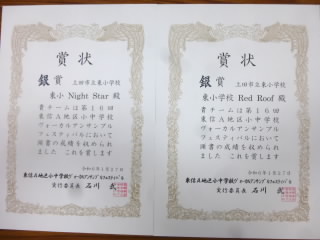 賞状
銀賞 上田市立東小学校
東小 Night Star 殿
貴チームは第16回
東信A地区小中学校
ヴォーカルアンサンブル
フェスティバルにおいて
頭書の成績を収められ
ました これを賞します
東信A地区小中学校ヴォーカルアンサンブルフェスティバル
実行委員長 石川 武
賞状
銀賞 上田市立東小学校
東小学校 Red Roof 殿
貴チームは第16回
東信A地区小中学校
ヴォーカルアンサンブル
フェスティバルにおいて
頭書の成績を収められ
ました これを賞します
東信A地区小中学校ヴォーカルアンサンブルフェスティバル
実行委員長 石川 武